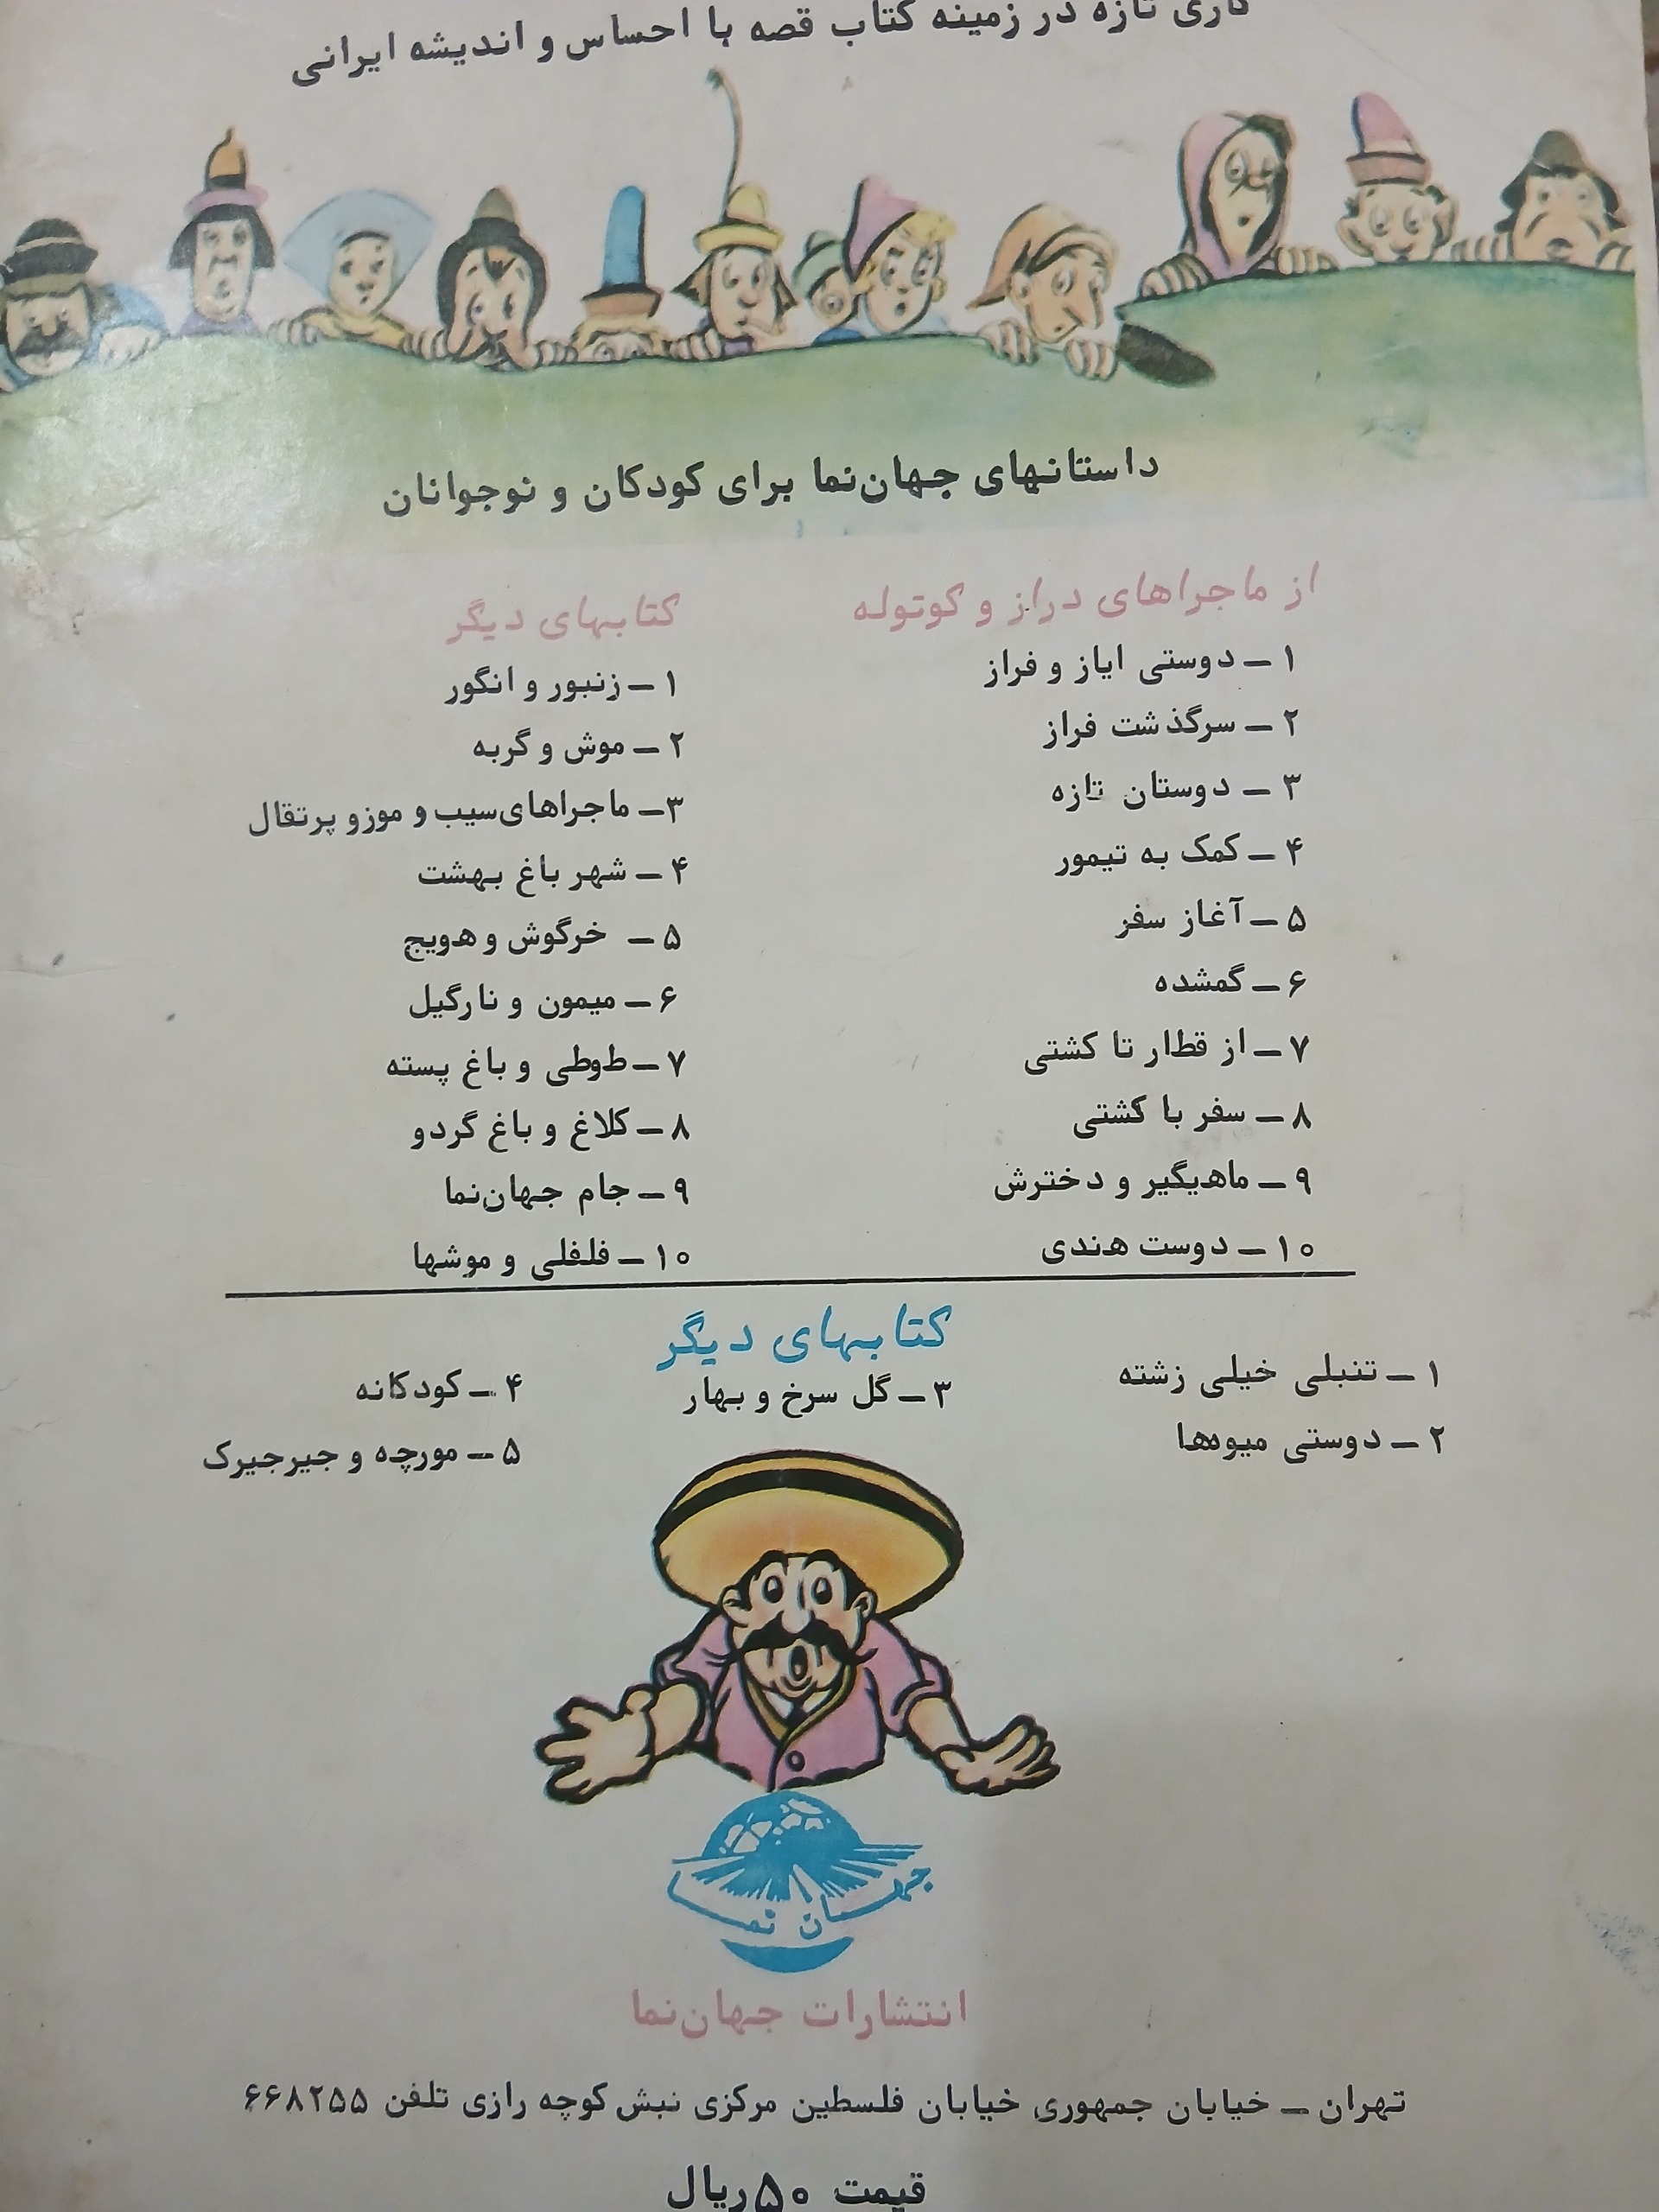 کاری تازه در زمینه کتاب قصه با احساس و اندیشه ایرانی
داستانهای جهان‌نما برای کودکان و نوجوانان
از ماجراهای دراز و کوتوله
۱ – دوستی ایاز و فراز
۲ – سرگذشت فراز
۳ – دوستان تازه
۴ – کمک به تیمور
۵ – آغاز سفر
۶ – گمشده
۷ – از قطار تا کشتی
۸ – سفر با کشتی
۹ – ماهیگیر و دخترش
۱۰ – دوست هندی
کتابهای دیگر
۱ – زنبور و انگور
۲ – موش و گربه
۳ – ماجراهای سیب و موز و پرتقال
۴ – شهر باغ بهشت
۵ – خرگوش و هویج
۶ – میمون و نارگیل
۷ – طوطی و باغ پسته
۸ – کلاغ و باغ گردو
۹ – جام جهان‌نما
۱۰ – فلفلی و موشها
کتابهای دیگر
۱ – تنبلی خیلی زشته
۲ – دوستی میوه‌ها
۳ – گل سرخ و بهار
۴ – کودکانه
۵ – مورچه و جیرجیرک
جهان نما
انتشارات جهان‌نما
تهران – خیابان جمهوری خیابان فلسطین مرکزی نبش کوچه رازی تلفن ۶۶۸۲۵۵
قیمت ۵۰ ریال